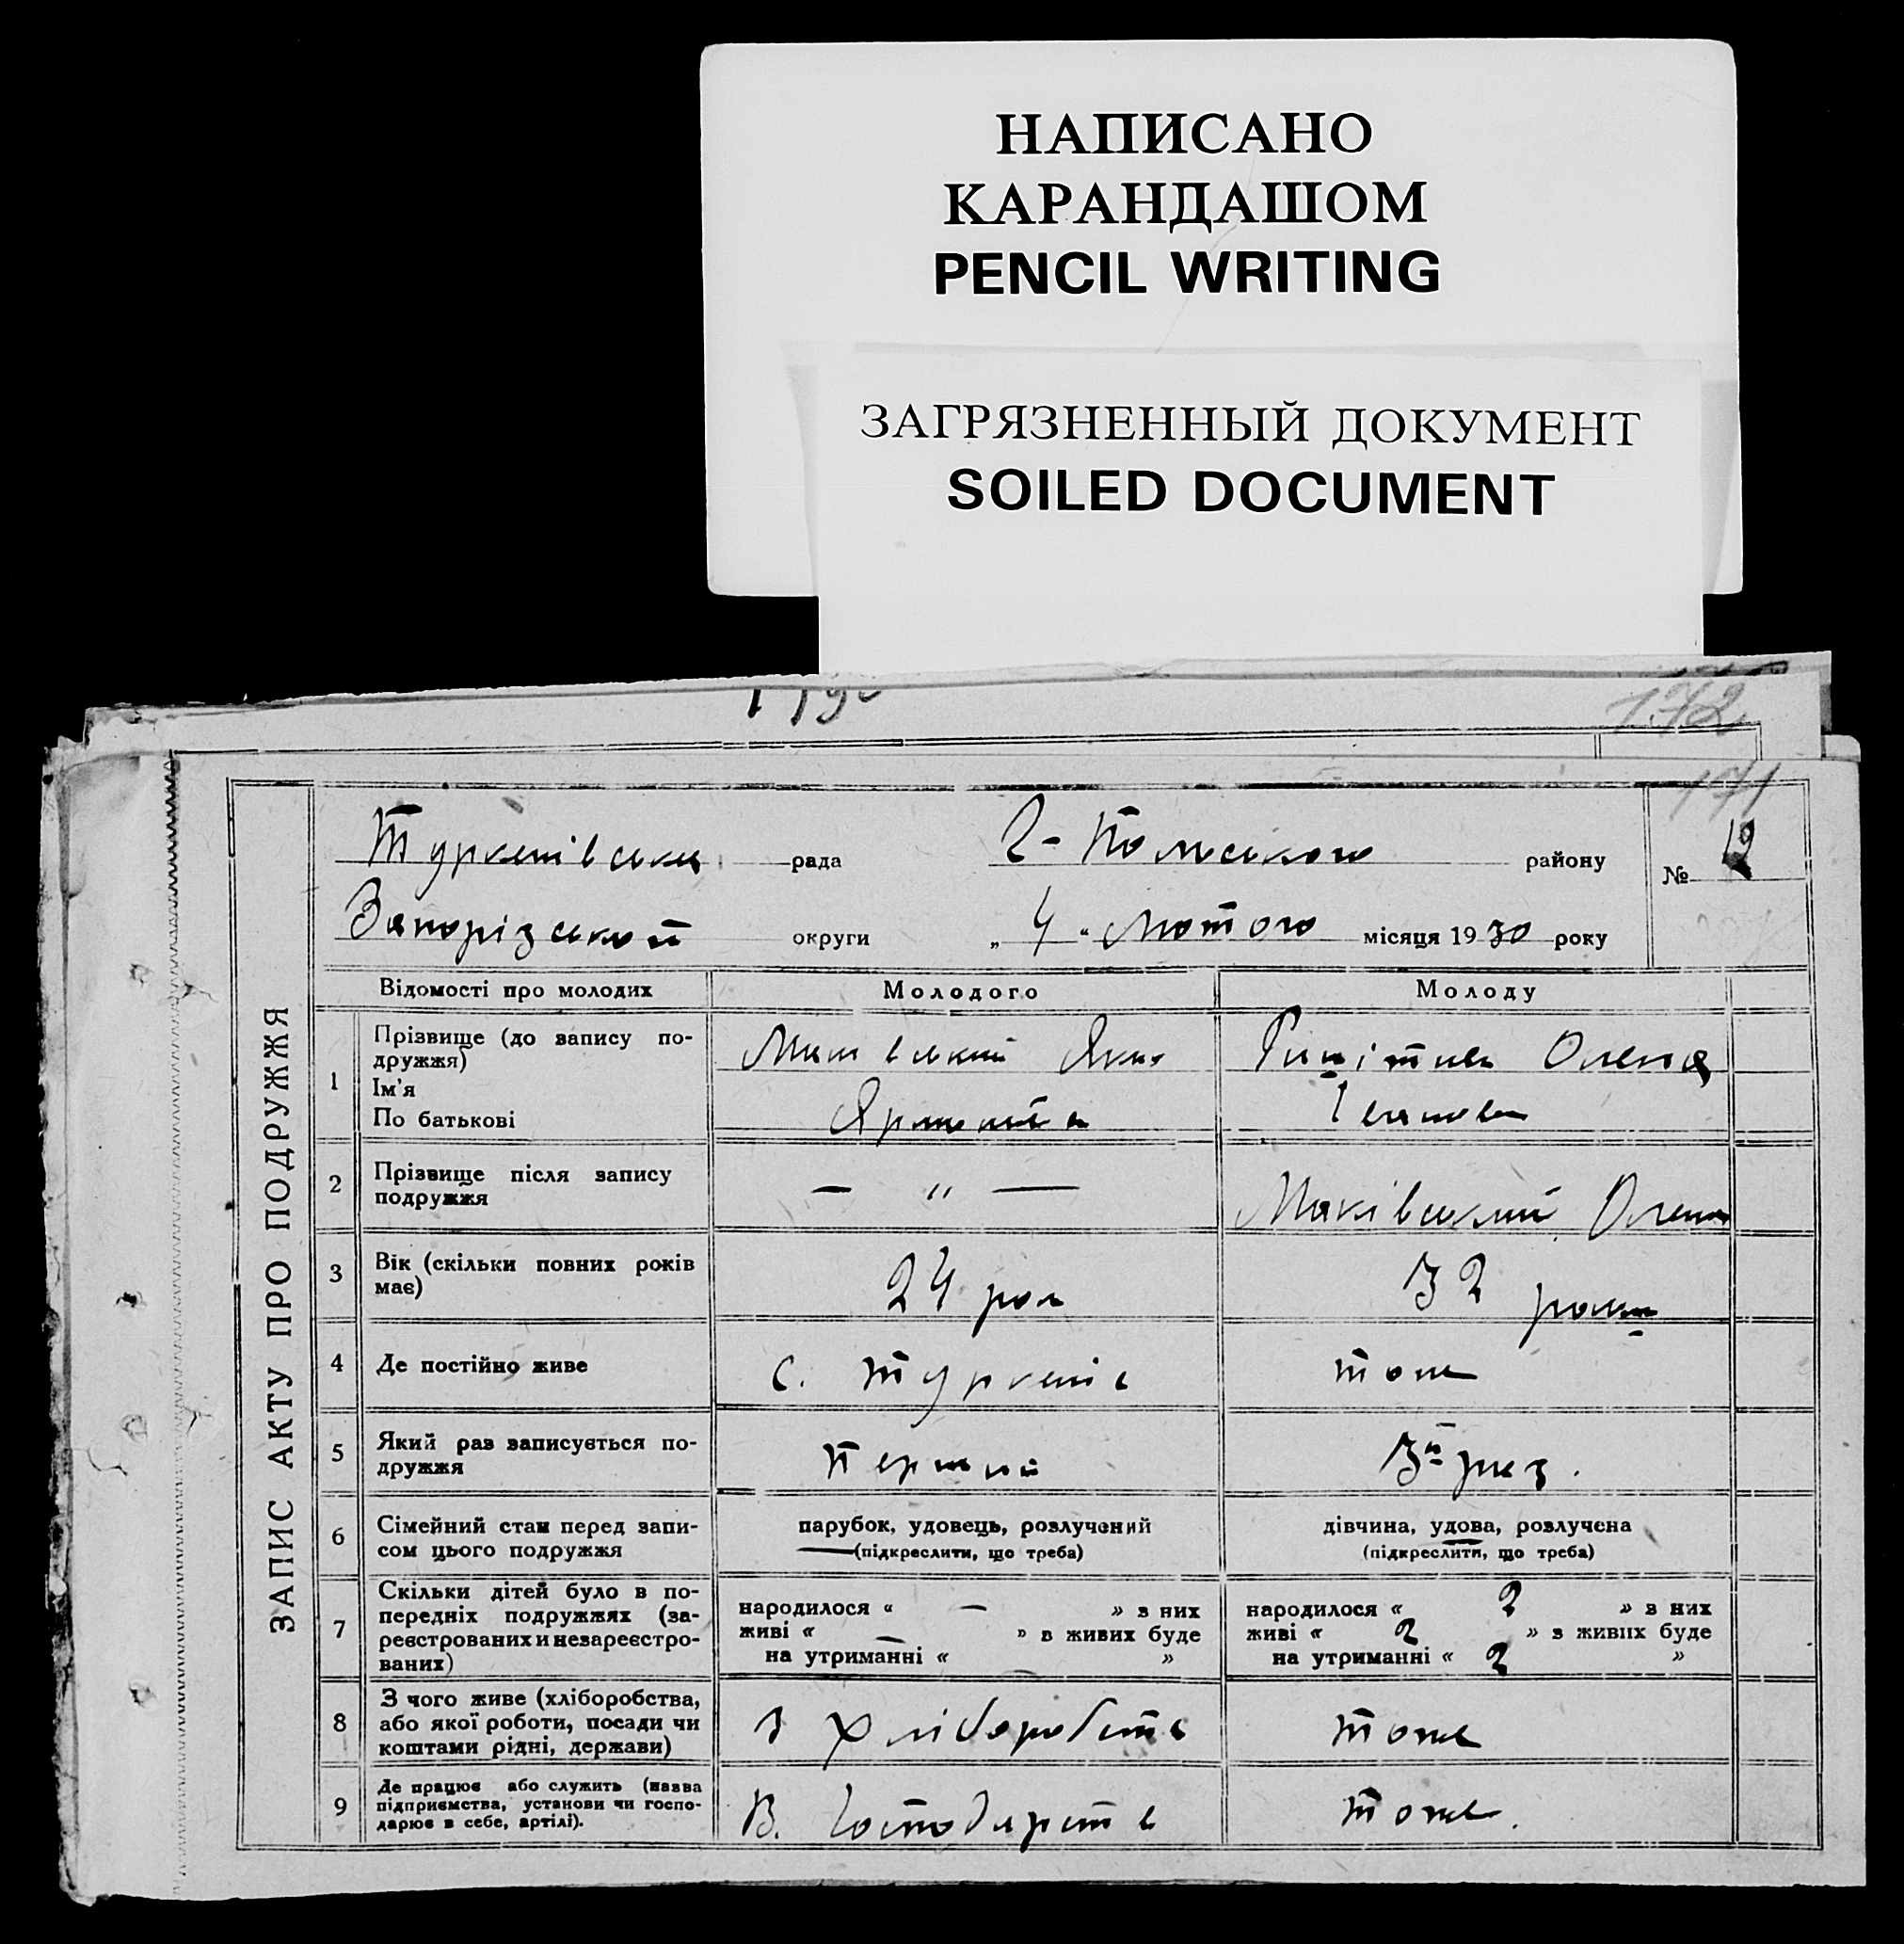 НАПИСАНО
КАРАНДАШОМ
PENCIL WRITING
ЗАГРЯЗНЕННЫЙ ДОКУМЕНТ
SOILED DOCUMENT
172
171
ЗАПИС АКТУ ПРО ПОДРУЖЖЯ
Туркенівська рада району № 12
Запорізької округи „ 4 “ Лютого місяця 1930 року
Відомості про молодих Молодого Молоду
1 Прізвище (до запису подружжя) Ім'я По батькові
Олена
Іванова
2 Прізвище після запису подружжя
— „ — Маківський Олена
3 Вік (скільки повних років має)
24 рок 32 роки
4 Де постійно живе
с. Туркенів тоже
5 Який раз записується подружжя
Перший 3й раз.
6 Сімейний стан перед записом цього подружжя
парубок, удовець, розлучений дівчина, удова, розлучена
(підкреслити, що треба) (підкреслити, що треба)
7 Скільки дітей було в попередніх подружжях (зареєстрованих и незареєстрованих)
народилося « — » з них народилося « 2 » з них
живі « — » в живих буде живі « 2 » з живих буде
на утриманні « » на утриманні « 2 »
8 З чого живе (хліборобства, або якої роботи, посади чи коштами рідні, держави)
З хліборобств тоже
9 Де працює або служить (назва підприємства, установи чи господарює в себе, артілі).
В. Господарств тоже.